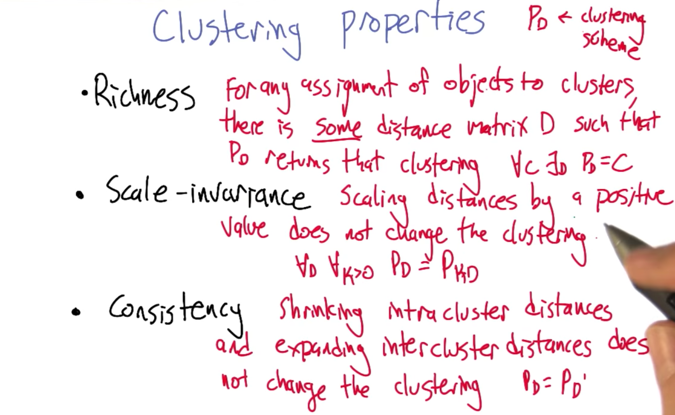 Clustering properties
P_D ← clustering
scheme
• Richness For any assignment of objects to clusters,
there is some distance matrix D such that
P_D returns that clustering ∀C ∃D P_D=C
• Scale-invariance Scaling distances by a positive
value does not change the clustering
∀D ∀K>0 P_D = P_KD
• Consistency Shrinking intracluster distances
and expanding intercluster distances does
not change the clustering P_D = P_D'